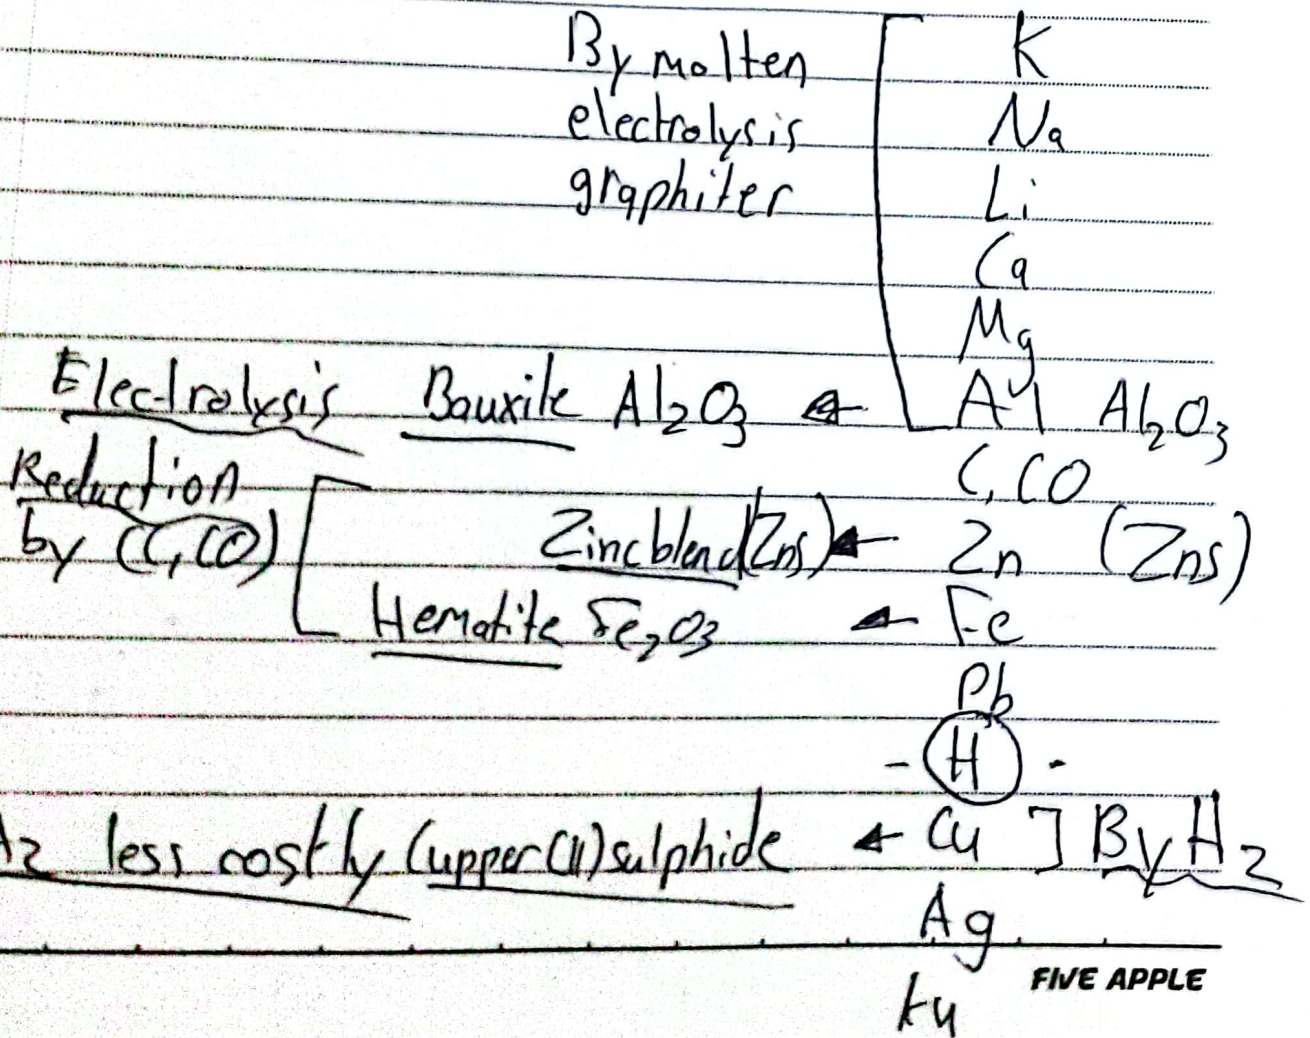 By molten K
electrolysis Na
graphiter Li
Ca
Mg
Electrolysis Bauxite Al₂O₃ Al Al₂O₃
Reduction C, CO
by (C, CO) Zinc blend (Zns) Zn (Zns)
Hematite Fe₂O₃ Fe
Pb
- H -
less costly Cupper(II)sulphide Cu ] By H₂
Ag
FIVE APPLE
Au